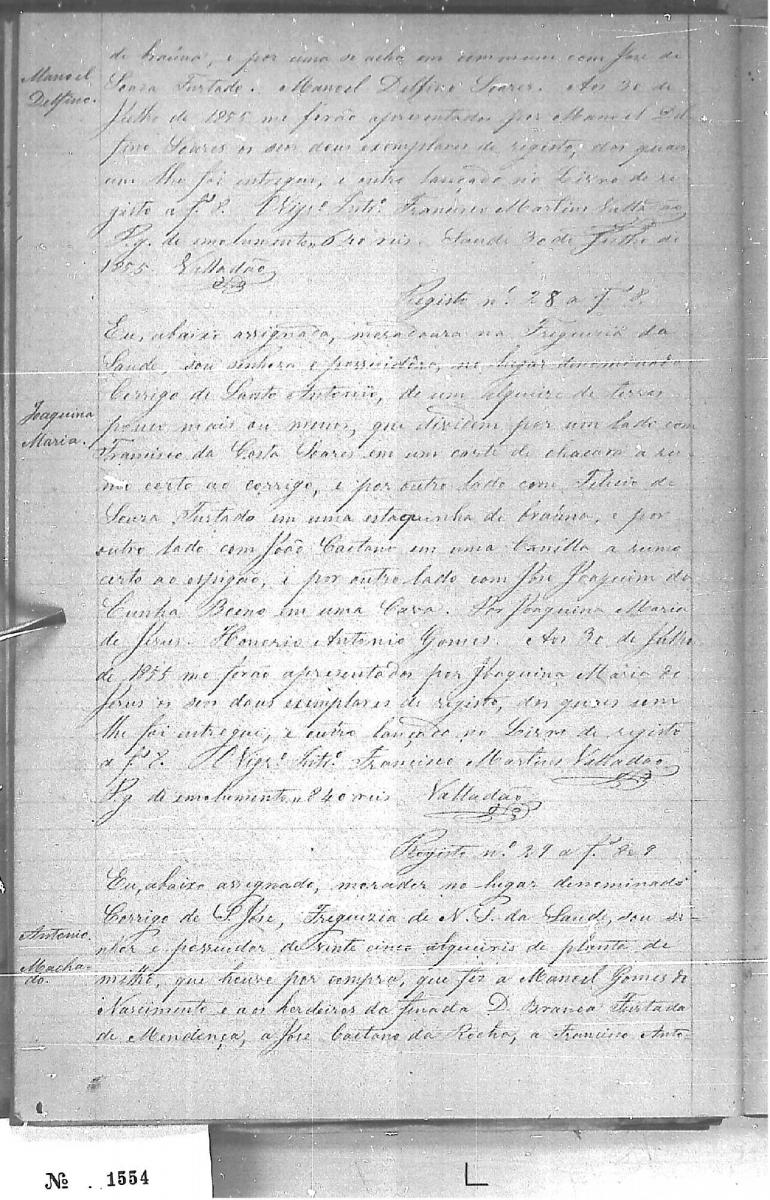 de braúna, e por uma se acha em commum com José de
Manoel
Delfino.
Souza Furtado. Manoel Delfino Soares. Aos 30 de
Julho de 1855 me forão apresentados por Manoel Del-
fino Soares os seus dous exemplares de registo, dos quaes
um lhe foi entregue, e outro lançado no Livro de re-
gisto a f.s 8. O Vigr.o Int.o Francisco Martins Valladão
Pg. de emolumentos 640 reis. Saude 30 de Julho de
1855. Valladão
Registo n.o 28 a f.s 8.
Eu, abaixo assignada, moradoura na Freguezia da
Saude, sou senhora e possuidôra, no lugar denominado
Corrigo de Santo Antonio, de um alqueire de terras
Joaquina
Maria.
pouco mais ou menos, que dividem por um lado com
Francisco da Costa Soares em um canto de chacara a ru-
mo certo ao corrigo, e por outro lado com Felicio de
Souza Furtado em uma estaquinha de braúna, e por
outro lado com João Caetano em uma Canilla a rumo
certo ao espigão, e por outro lado com José Joaquim da
Cunha Bueno em uma Cava. Por Joaquina Maria
de Jesus. Honorio Antonio Gomes. Aos 30 de Julho
de 1855 me forão apresentados por Joaquina Maria de
Jesus os seus dous exemplares de registo, dos quaes um
lhe foi entregue, e outro lançado no Livro de registo
a f.s 8. O Vigr.o Int.o Francisco Martins Valladão
Pg. de emolumentos 840 reis Valladão
Registo n.o 29 a f.s 8 e 9
Eu, abaixo assignado, morador no lugar denominado
Corrigo de S. José, Freguizia de N. S. da Saude, sou se-
Antonio
Macha-
do.
nhor e possuidor de vinte cinco alqueires de planta de
milho, que houve por compra, que fiz a Manoel Gomes do
Nascimento e aos herdeiros da finada D. Branca Furtada
de Mendonça, a José Caetano da Rocha, a Francisco Anto-
No. 1554